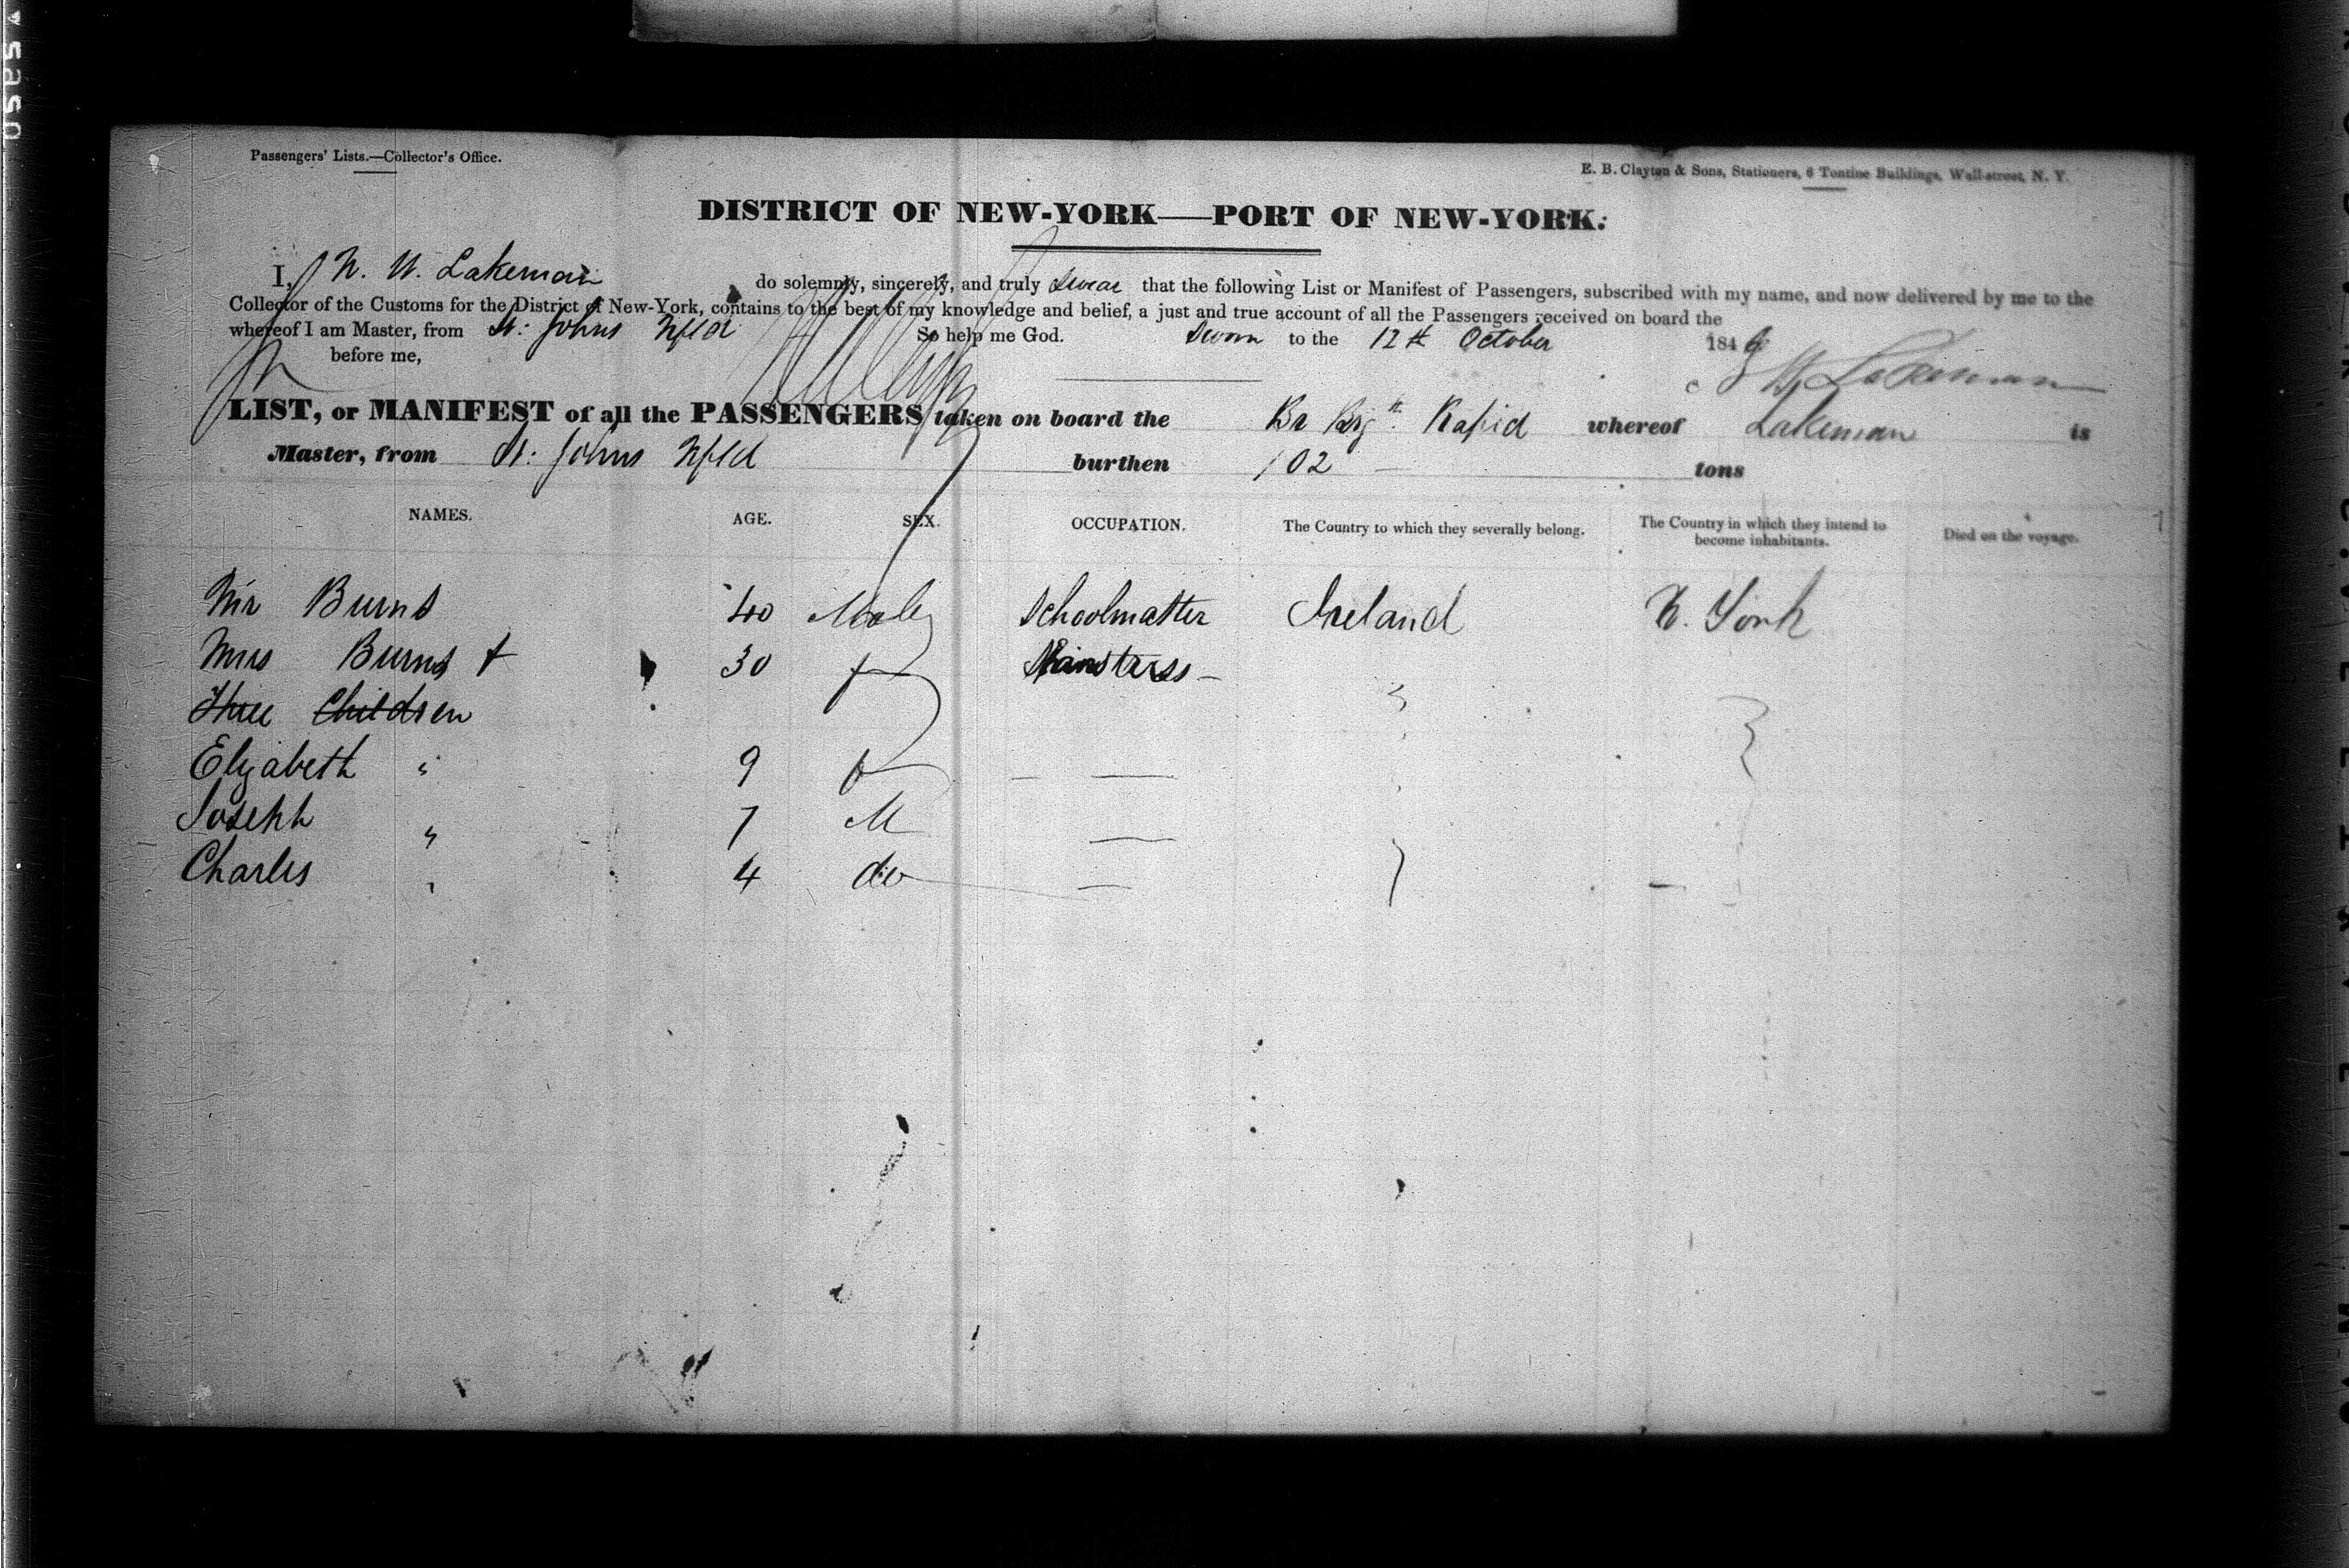 Passengers' Lists.—Collector's Office.
E. B. Clayton & Sons, Stationers, 6 Tontine Buildings, Wall-street, N. Y.
DISTRICT OF NEW-YORK—PORT OF NEW-YORK.
I, N. W. Lakeman do solemnly, sincerely, and truly swear that the following List or Manifest of Passengers, subscribed with my name, and now delivered by me to the
Collector of the Customs for the District of New-York, contains to the best of my knowledge and belief, a just and true account of all the Passengers received on board the
whereof I am Master, from St: Johns Nfld So help me God. Sworn to the 12th October 184
before me, Lakeman
LIST, or MANIFEST of all the PASSENGERS taken on board the Br Brign Rapid whereof Lakeman is
Master, from St: Johns Nfld burthen 102 tons
NAMES. AGE. SEX. OCCUPATION. The Country to which they severally belong. The Country in which they intend to become inhabitants. Died on the voyage.
Mr Burns 40 Male Schoolmaster Ireland N. York
Mrs Burns + 30 f
Three Children
Elizabeth " 9 f — —
Joseph " 7 M —
Charles " 4 do — —